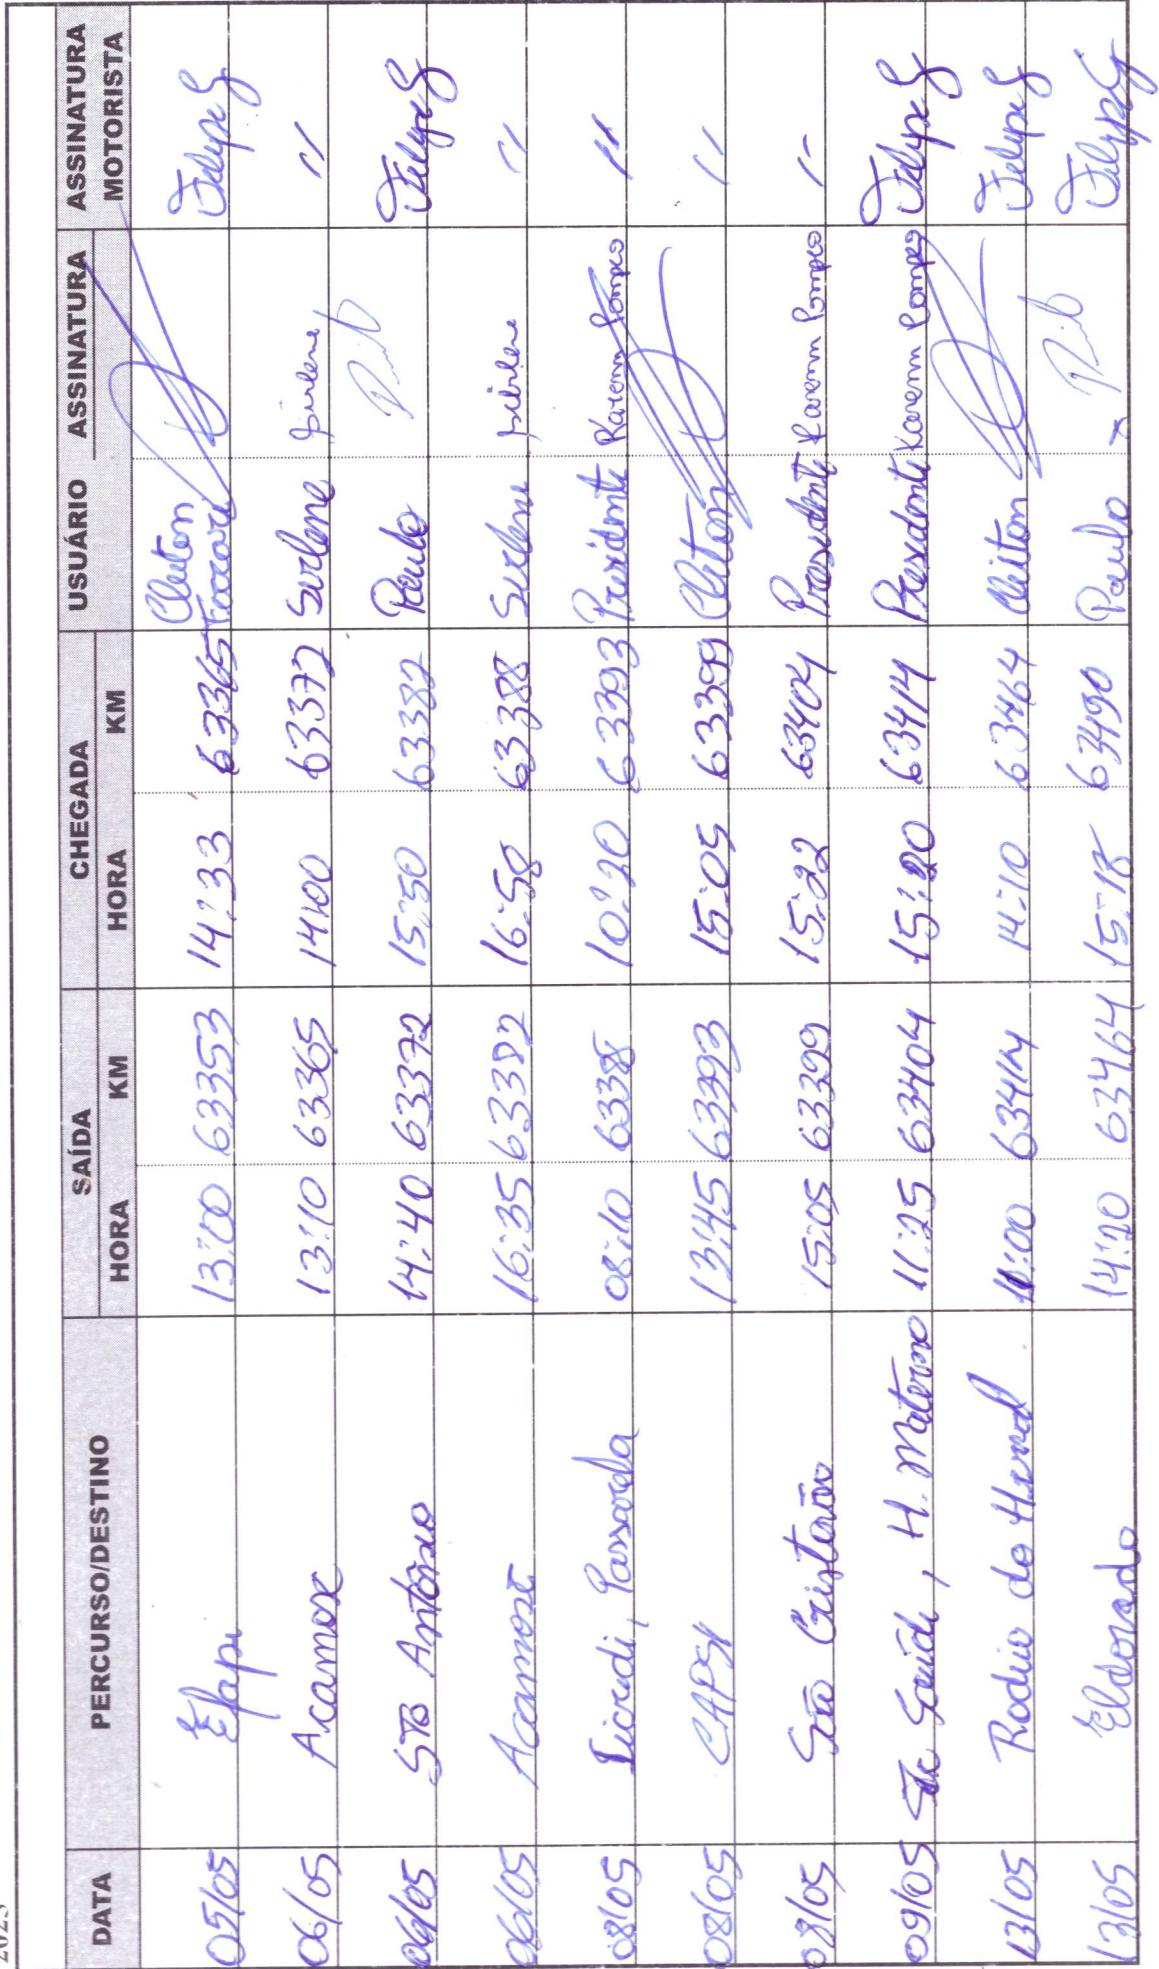 2023
DATA PERCURSO/DESTINO SAÍDA CHEGADA USUÁRIO ASSINATURA ASSINATURA MOTORISTA
HORA KM HORA KM
05/05 Efapi 13:00 63353 14:33 63365 Cleiton Ferrari Felype G
06/05 Acamosc 13:10 63365 14:00 63372 Surlene Surlene "
06/05 STO Antônio 14:40 63372 15:50 63382 Paulo Felype G
06/05 Acamosc 16:35 63382 16:58 63388 Surlene Surlene "
08/05 Sicredi, Passarela 08:10 6338 10:20 63393 Presidente Karenn Pompeo "
08/05 CAPSi 13:45 63393 15:05 63399 Cleiton "
08/05 São Cristóvão 15:05 63399 15:22 63404 Presidente Karenn Pompeo "
09/05 Sec Saúde, H. Materno 11:25 63404 15:20 63414 Presidente Karenn Pompeo Felype G
13/05 Rodeio do Herval 11:00 63414 14:10 63464 Cleiton Felype G
13/05 Eldorado 14:20 63464 15:18 63490 Paulo Felype G